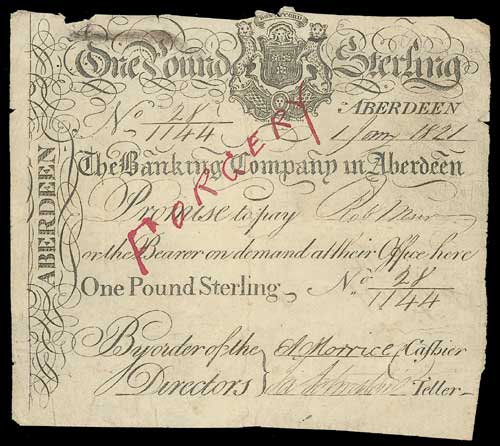 BON ACCORD
One Pound Sterling
No 28/1144
ABERDEEN
1 Jany 1821
FORGERY
The Banking Company in Aberdeen
Promise to pay Rob
or the Bearer on demand at their Office here
One Pound Sterling No 28/1144
By order of the
Directors
A Morrice Cashier
Teller
ABERDEEN